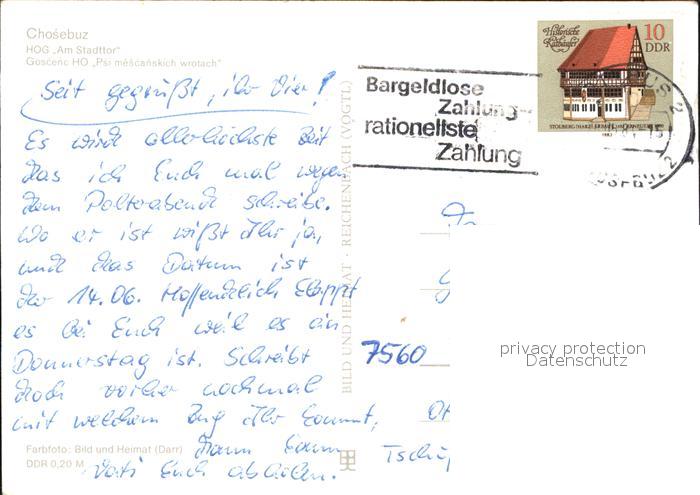 Chośebuz
HOG „Am Stadttor"
Gosćenc HO „Psi měšćańskich wrotach"
Seit gegrüßt, ihr Vier!
Es wird allerhöchste Zeit
das ich Euch mal wegen
dem Polterabend schreibe.
Wo er ist wißt Ihr ja,
und das Datum ist
der 14.06. Hoffendlich klappt
es bei Euch weil es ein
Donnerstag ist. Schreibt
doch vorher nochmal
mit welchem Zug Ihr kommt,
dann kann
Vati Euch abholen.
Farbfoto: Bild und Heimat (Darr)
DDR 0,20 M
BILD UND HEIMAT · REICHENBACH (VOGTL)
Bargeldlose
Zahlung-
rationellste
Zahlung
Historische
Rathäuser
10
DDR
7560
privacy protection
Datenschutz